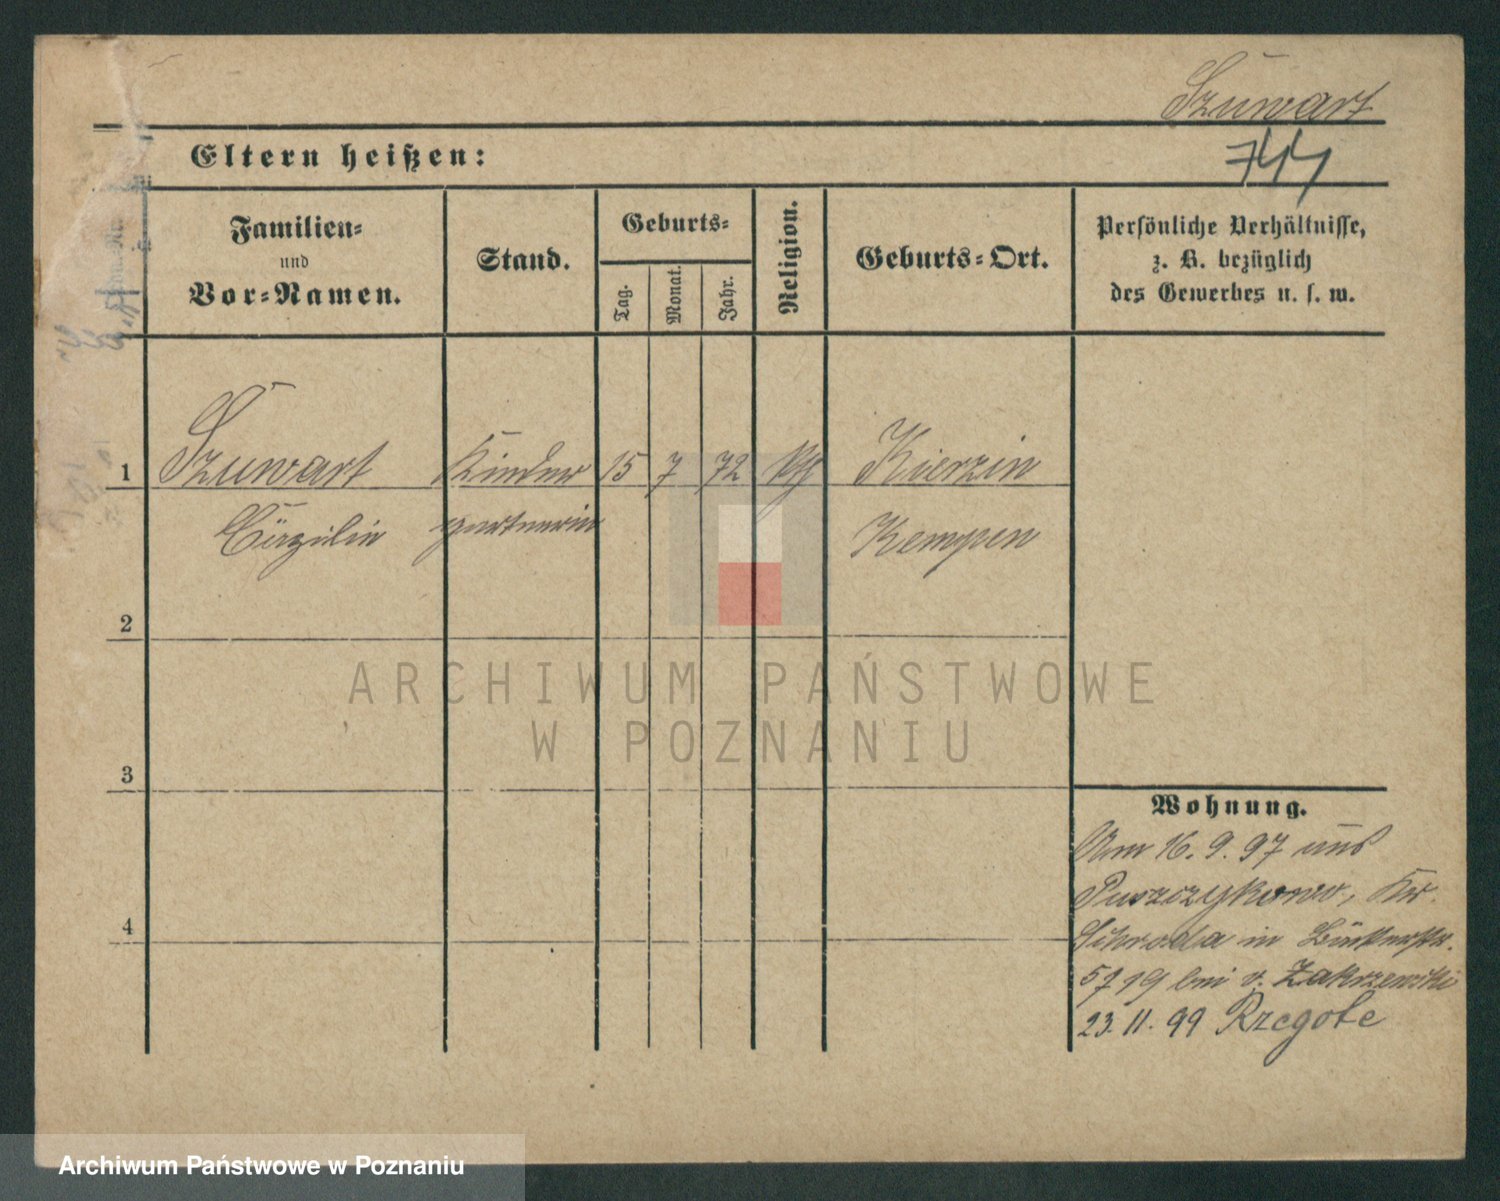 Szuwart
744
Eltern heißen:
Familien-
und
Vor-Namen.
Stand.
Geburts-
Tag.
Monat.
Jahr.
Religion.
Geburts-Ort.
Persönliche Verhältnisse,
z. B. bezüglich
des Gewerbes u. s. w.
1 Szuwart Kinder 15 7 72 kth Kierzin
Cäzilie gärtnerin Kempen
2
3
4
Wohnung.
Am 16. 9. 97 aus
Puszczykowo, Kr.
Schroda in
5 / 19 bei v. Zakrzewski
23. 11. 99 Rzegote
ARCHIWUM PAŃSTWOWE
W POZNANIU
Archiwum Państwowe w Poznaniu